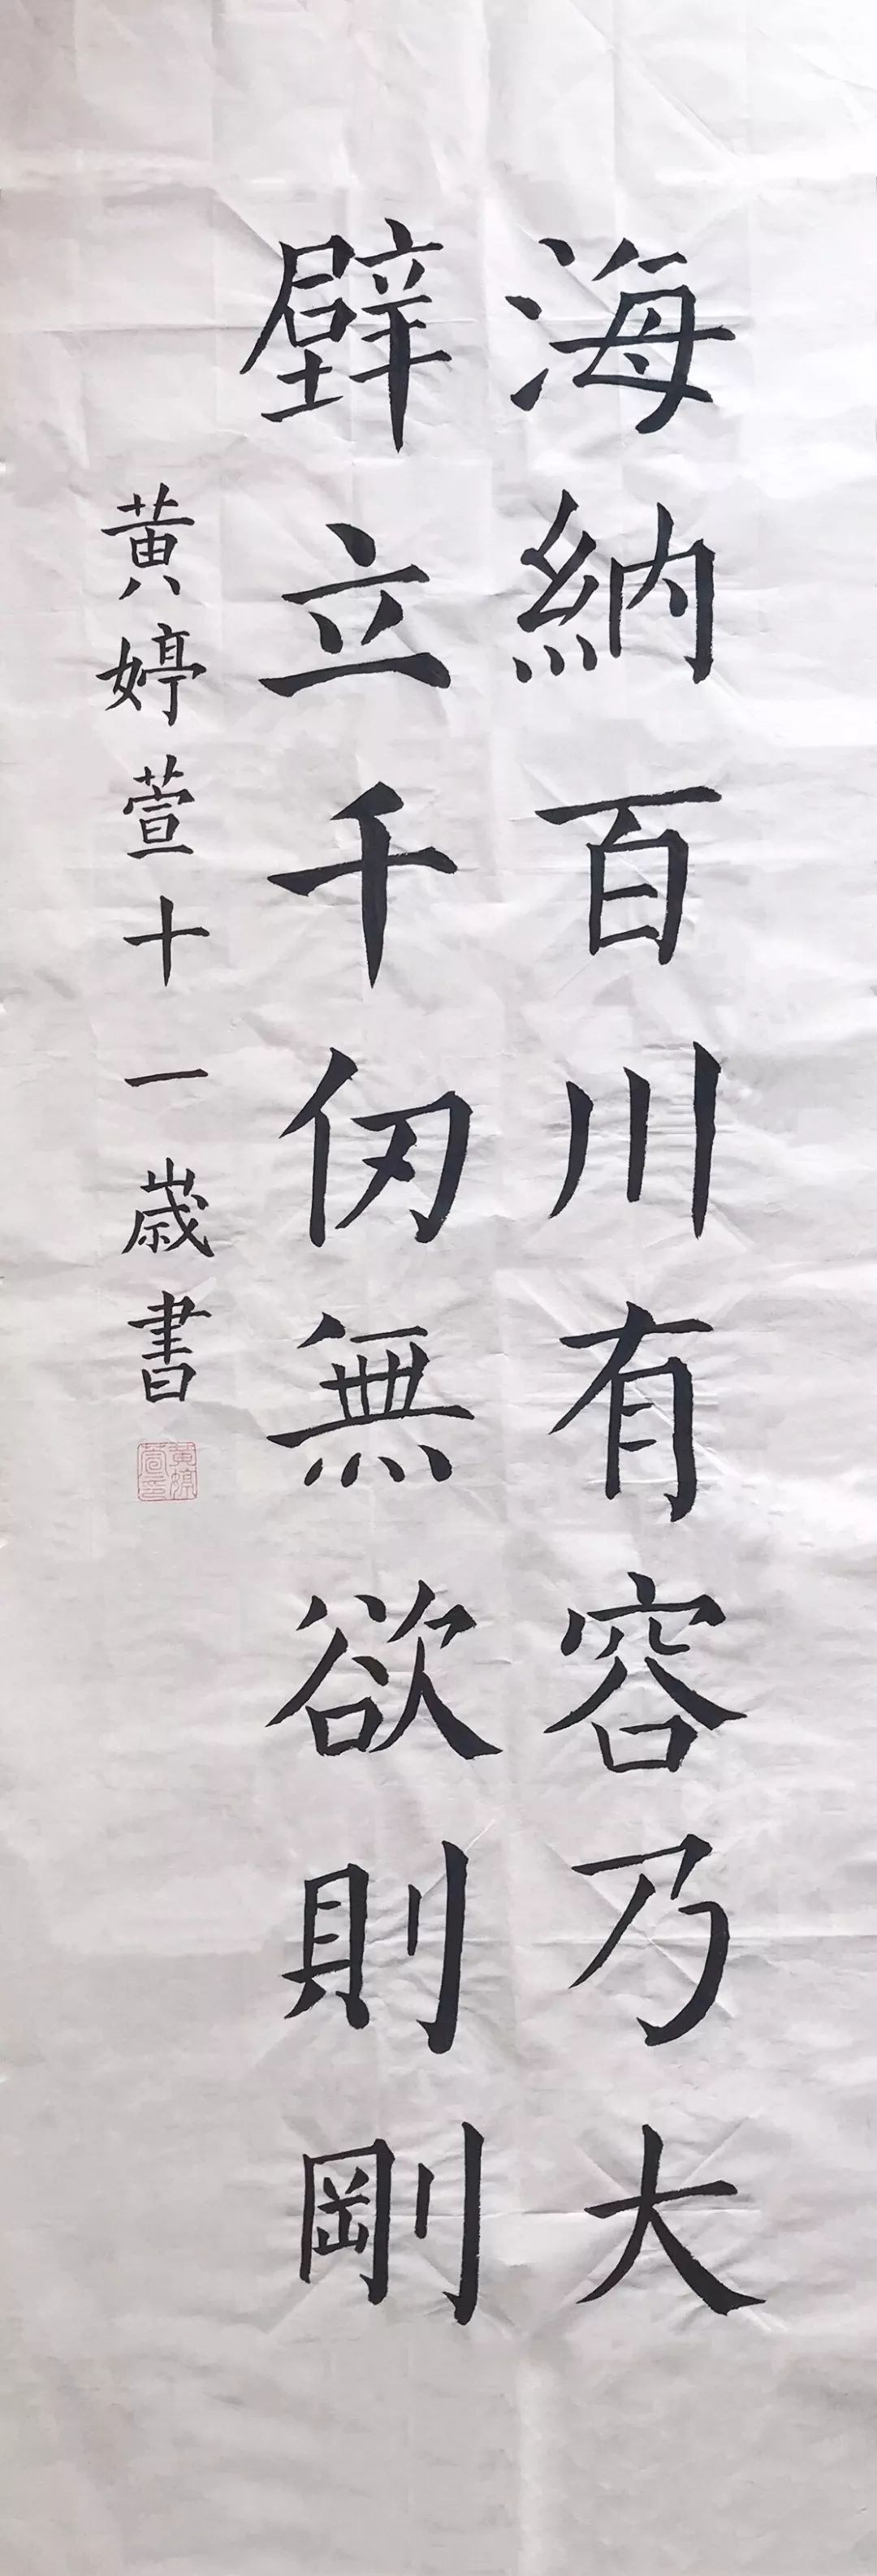 海納百川有容乃大
壁立千仞無欲則剛
黃婷萱十一歲書
黃婷萱印